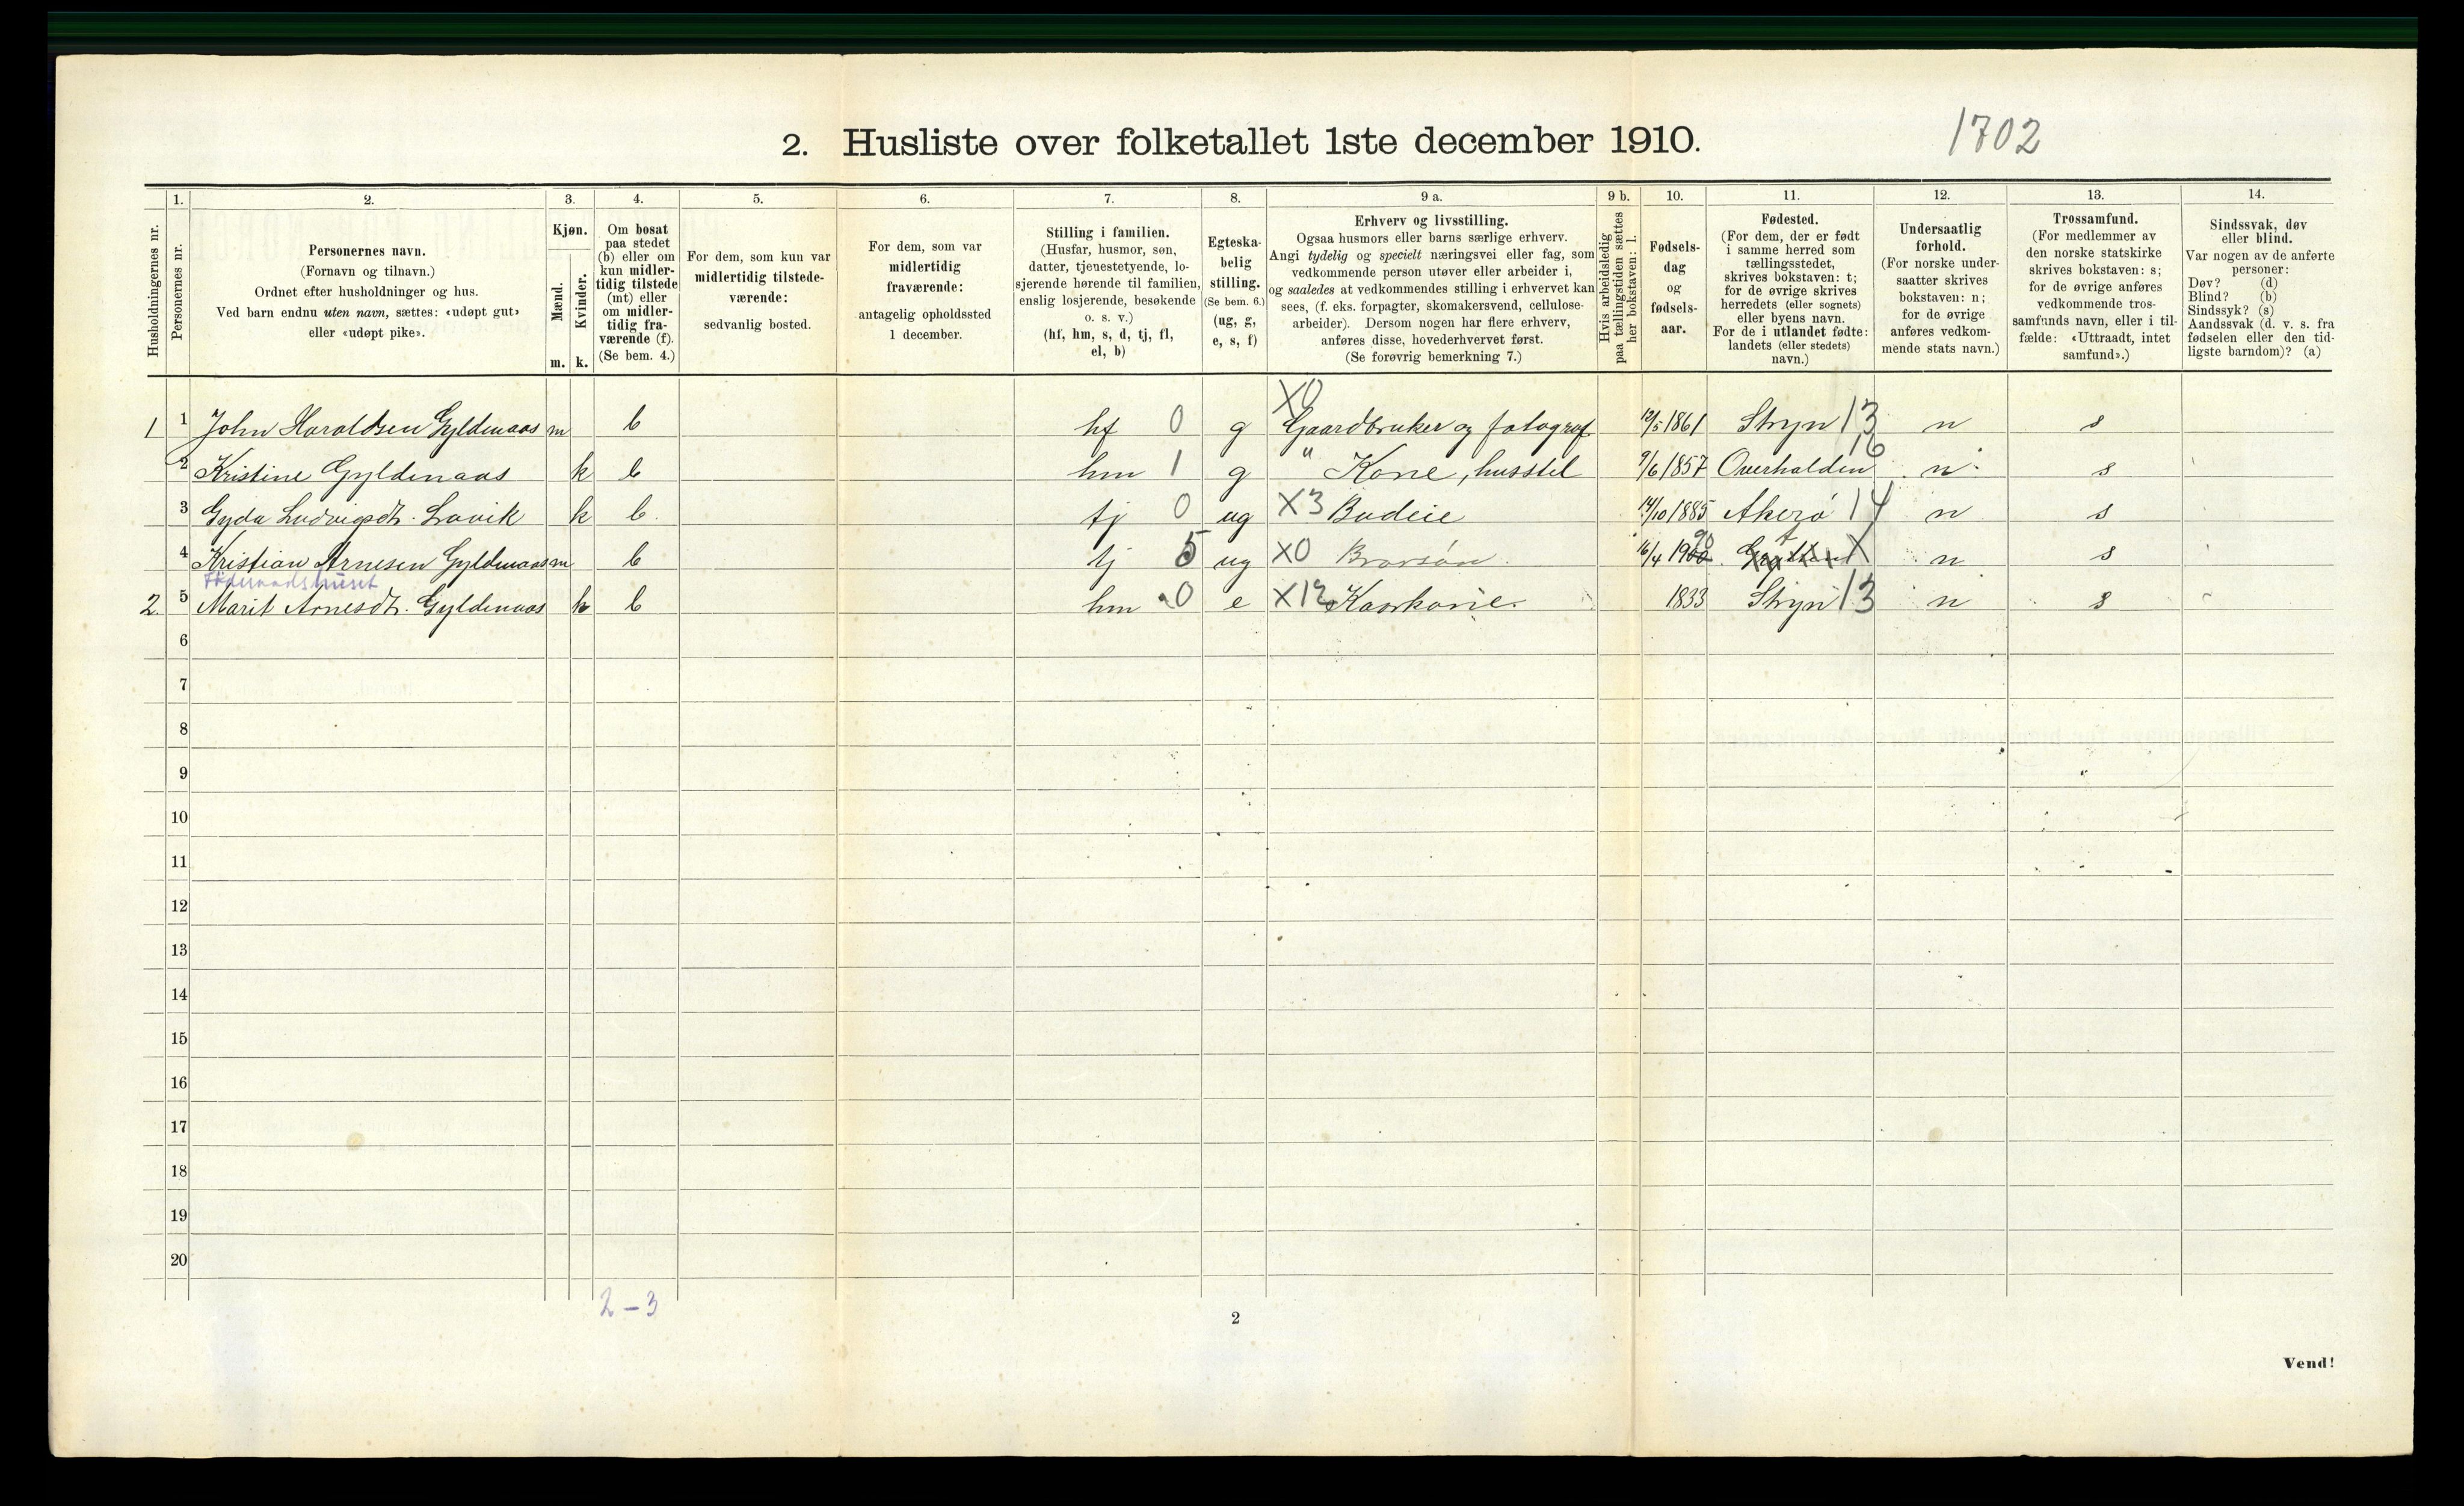 2. Husliste over folketallet 1ste december 1910.
1702
Husholdningernes nr.
1.
Personernes nr.
2.
Personernes navn.
(Fornavn og tilnavn.)
Ordnet efter husholdninger og hus.
Ved barn endnu uten navn, sættes: «udøpt gut»
eller «udøpt pike».
3.
Kjøn.
Mænd.
Kvinder.
m. k.
4.
Om bosat
paa stedet
(b) eller om
kun midler-
tidig tilstede
(mt) eller
om midler-
tidig fra-
værende (f).
(Se bem. 4.)
5.
For dem, som kun var
midlertidig tilstede-
værende:
sedvanlig bosted.
6.
For dem, som var
midlertidig
fraværende:
antagelig opholdssted
1 december.
7.
Stilling i familien.
(Husfar, husmor, søn,
datter, tjenestetyende, lo-
sjerende hørende til familien,
enslig losjerende, besøkende
o. s. v.)
(hf, hm, s, d, tj, fl,
el, b)
8.
Egteska-
belig
stilling.
(Se bem. 6.)
(ug, g,
e, s, f)
9 a.
Erhverv og livsstilling.
Ogsaa husmors eller barns særlige erhverv.
Angi tydelig og specielt næringsvei eller fag, som
vedkommende person utøver eller arbeider i,
og saaledes at vedkommendes stilling i erhvervet kan
sees, (f. eks. forpagter, skomakersvend, cellulose-
arbeider). Dersom nogen har flere erhverv,
anføres disse, hovederhvervet først.
(Se forøvrig bemerkning 7.)
9 b.
Hvis arbeidsledig
paa tællingstiden sættes
her bokstaven: l.
10.
Fødsels-
dag
og
fødsels-
aar.
11.
Fødested.
(For dem, der er født
i samme herred som
tællingsstedet,
skrives bokstaven: t;
for de øvrige skrives
herredets (eller sognets)
eller byens navn.
For de i utlandet fødte:
landets (eller stedets)
navn.)
12.
Undersaatlig
forhold.
(For norske under-
saatter skrives
bokstaven: n;
for de øvrige
anføres vedkom-
mende stats navn.)
13.
Trossamfund.
(For medlemmer av
den norske statskirke
skrives bokstaven: s;
for de øvrige anføres
vedkommende tros-
samfunds navn, eller i til-
fælde: «Uttraadt, intet
samfund».)
14.
Sindssvak, døv
eller blind.
Var nogen av de anførte
personer:
Døv? (d)
Blind? (b)
Sindssyk? (s)
Aandssvak (d. v. s. fra
fødselen eller den tid-
ligste barndom)? (a)
1 1 John Haraldsen Gyldenaas m b hf 0 g X0 Gaardbruker og fotograf 12/5 1861 Stryn 13 n s
2 Kristine Gyldenaas k b hm 1 g " Kone, husstel 9/6 1857 Overhalden 16 n s
3 Gyda Ludvigsdt. Lavik k b tj 0 ug X3 Budeie 14/10 1885 Akerø 14 n s
4 Kristian Arnesen Gyldenaas m b tj 5 ug X0 16/4 t X n s
Föderaadshuset
2. 5 Marit Arnesdt. Gyldenaas k b hm 0 e X12 Kaarkone. 1833 Stryn 13 n s
6
7
8
9
10
11
12
13
14
15
16
17
18
19
20
2 – 3
2
Vend!